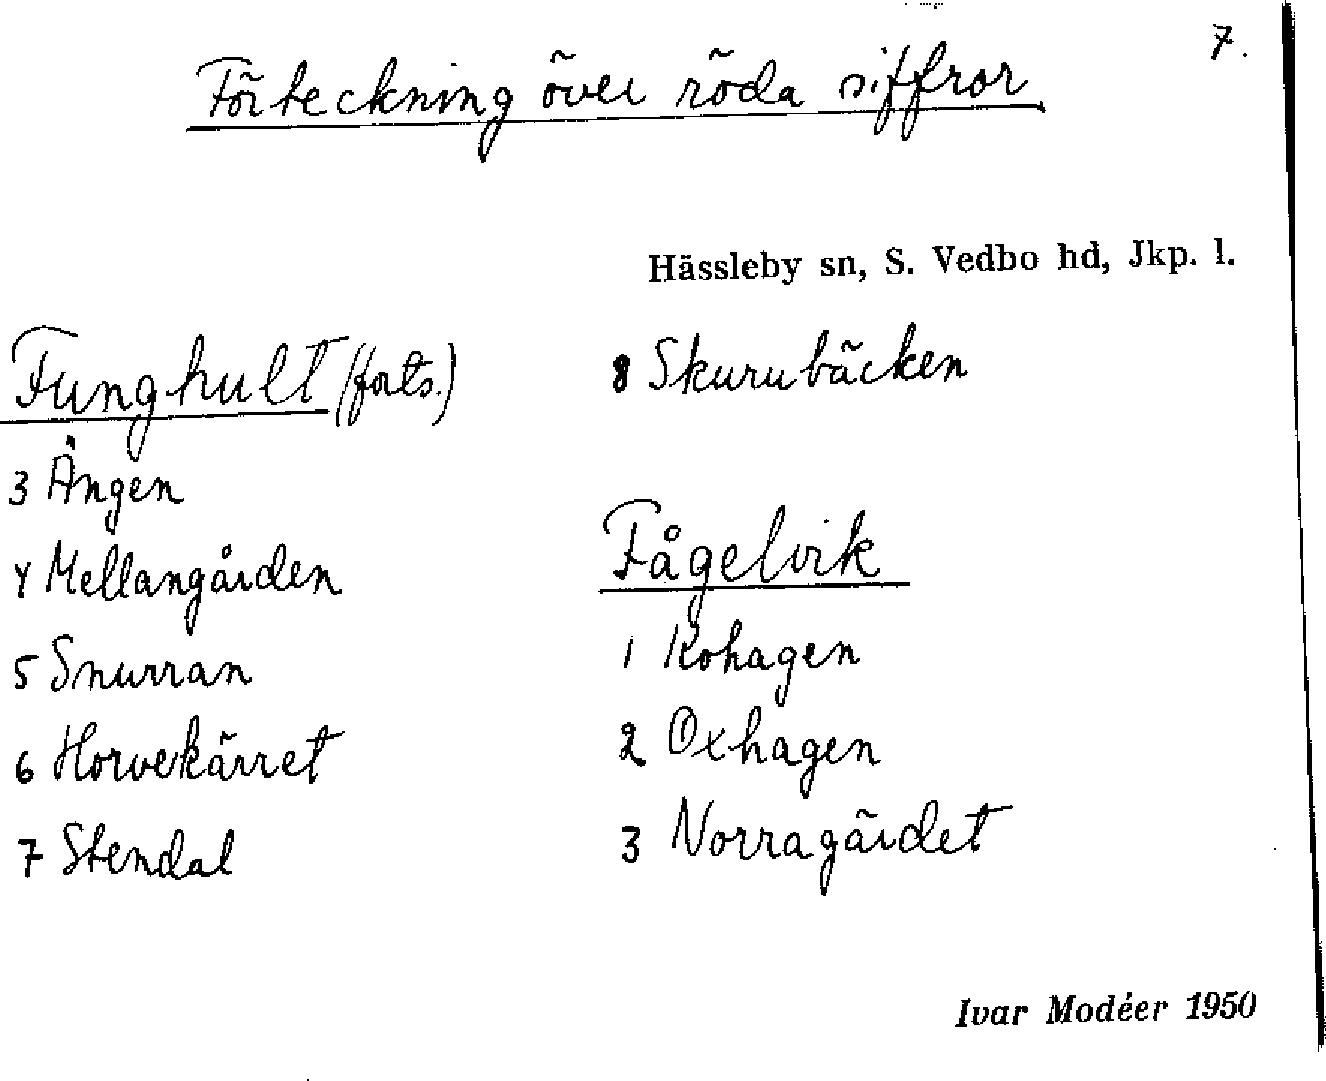 7.
Förteckning över röda siffror
Hässleby sn, S. Vedbo hd, Jkp. l.
Funghult (forts.)
3 Ängen
4 Mellangården
5 Snurran
6 Horvekärret
7 Stendal
8 Skurubäcken
Fågelvik
1 Kohagen
2 Oxhagen
3 Norragärdet
Ivar Modéer 1950